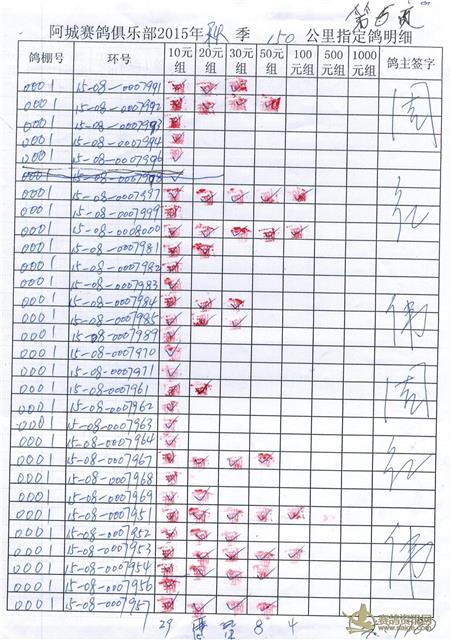 第五页
阿城赛鸽俱乐部2015年秋季 150 公里指定鸽明细
鸽棚号 环号 10元组 20元组 30元组 50元组 100元组 500元组 1000元组 鸽主签字
0001 15-08-0007991
0001 15-08-0007992
0001 15-08-0007993
0001 15-08-0007994
0001 15-08-0007996
0001
0001 15-08-0007997
0001 15-08-0007999
0001 15-08-0008000
0001 15-08-0007981
0001 15-08-0007982
0001 15-08-0007983
0001 15-08-0007984
0001 15-08-0007985
0001 15-08-0007989
0001 15-08-0007970
0001 15-08-0007971
0001 15-08-0007961
0001 15-08-0007962
0001 15-08-0007963
0001 15-08-0007964
0001 15-08-0007967
0001 15-08-0007968
0001 15-08-0007969
0001 15-08-0007951
0001 15-08-0007952
0001 15-08-0007953
0001 15-08-0007954
0001 15-08-0007956
0001 15-08-0007957
周
红
伟
周
红
伟
29 15 12 8 4
赛鸽资讯网